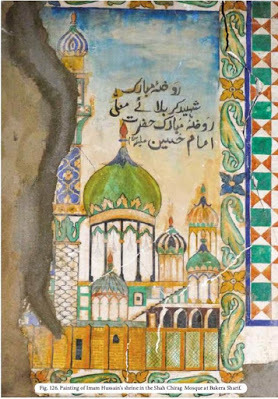 روضۂ مبارک
شہید کربلائے معلیٰ
روضۂ مبارک حضرت
امام حسین
Fig. 126. Painting of Imam Hussain's shrine in the Shah Chirag Mosque at Bakera Sharif.